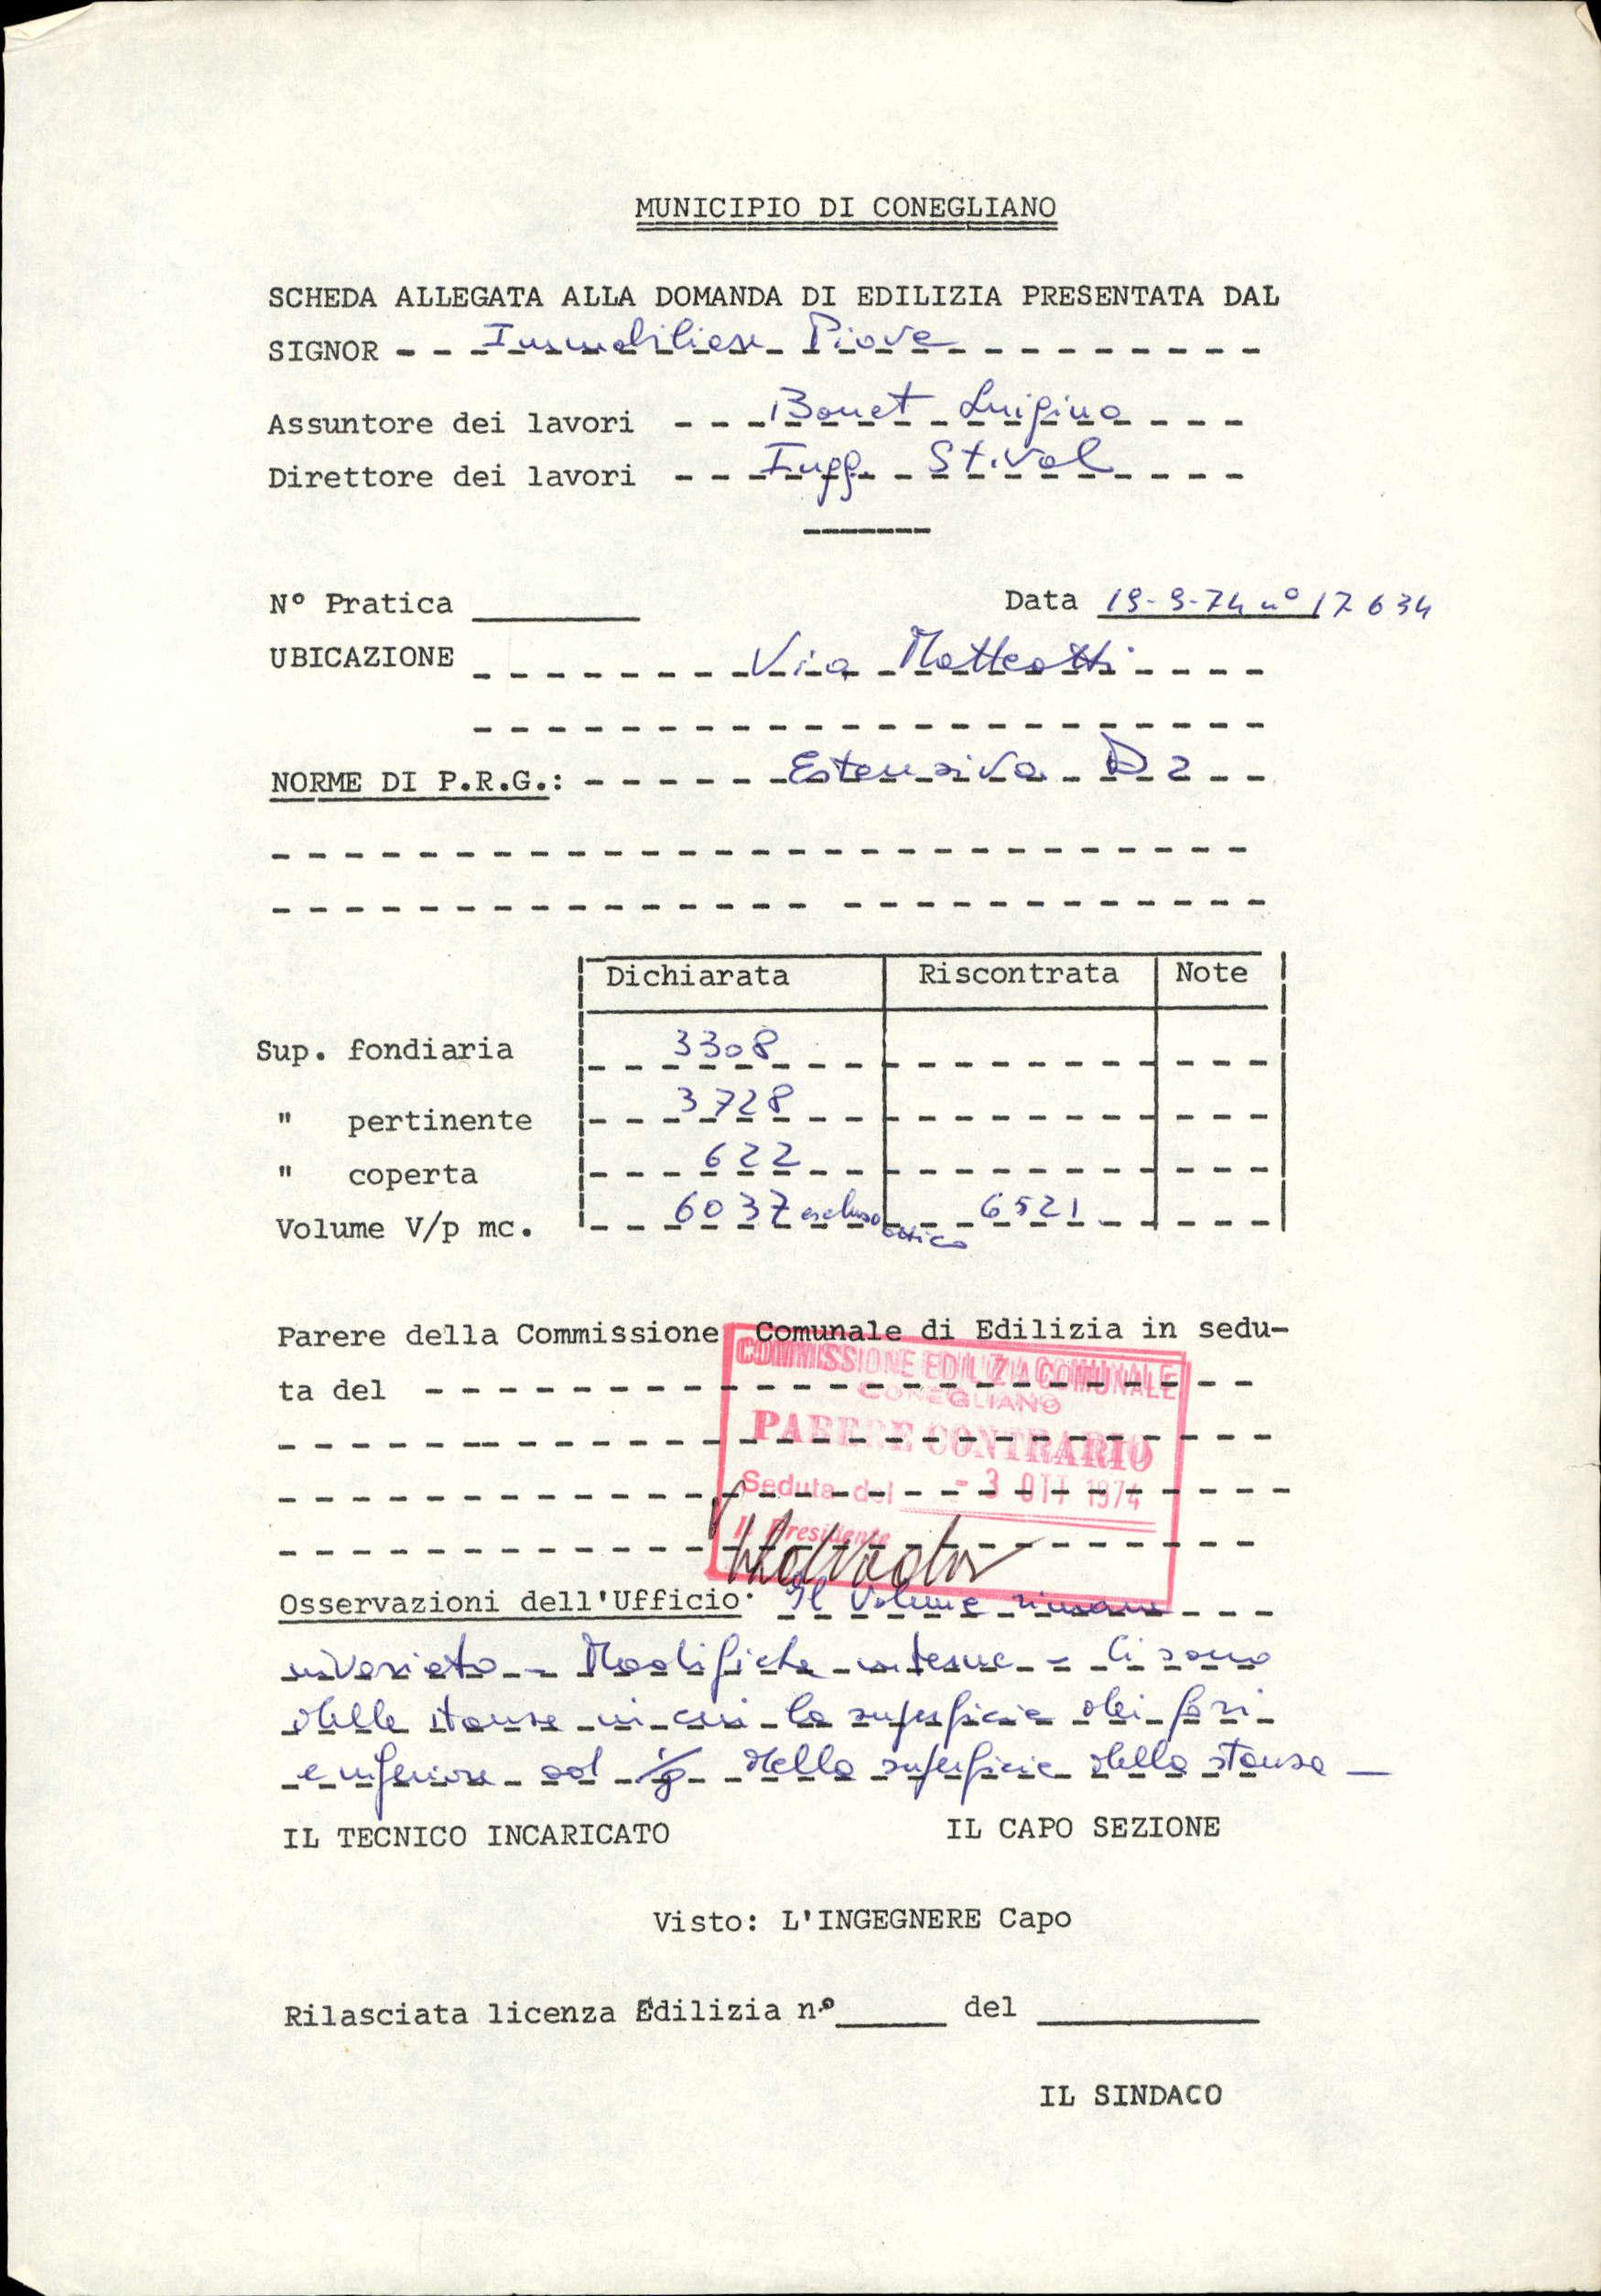 MUNICIPIO DI CONEGLIANO
SCHEDA ALLEGATA ALLA DOMANDA DI EDILIZIA PRESENTATA DAL
SIGNOR Immobiliare Piave
Assuntore dei lavori Bonet Luigino
Direttore dei lavori Ingg. Stival
N° Pratica Data 19-9-74 n° 17634
UBICAZIONE Via Matteotti
NORME DI P.R.G.: Estensiva D2
Dichiarata Riscontrata Note
Sup. fondiaria 3308
" pertinente 3728
" coperta 622
Volume V/p mc. 6037 escluso attico 6521
Parere della Commissione Comunale di Edilizia in sedu-
ta del
COMMISSIONE EDILIZIA COMUNALE
CONEGLIANO
PARERE CONTRARIO
Seduta del - 3 OTT 1974
Il Presidente
Osservazioni dell'Ufficio: Il Volume rimane
invariato - Modifiche interne - Ci sono
delle stanze in cui la superficie dei fori
e inferiore ad 1/8 della superficie della stanza -
IL TECNICO INCARICATO IL CAPO SEZIONE
Visto: L'INGEGNERE Capo
Rilasciata licenza Edilizia n.° del
IL SINDACO